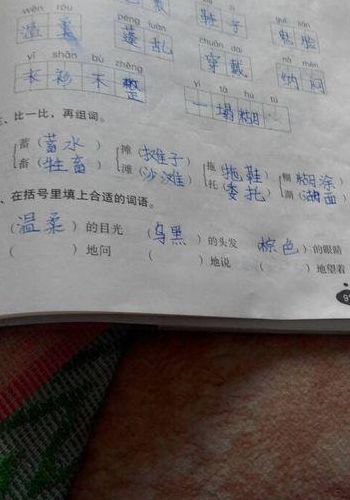 wēn róu
温柔
péng luàn
蓬乱
子
chuān dài
穿戴
nà mèn
纳闷
yī shān bù zhěng
衣衫不整
yī tā hú tú
一塌糊
、比一比,再组词。
蓄(蓄水) 摊(摊子) 拖(拖鞋) 糊(糊涂)
畜(牲畜) 滩(沙滩) 托(委托) 湖(湖面)
、在括号里填上合适的词语。
(温柔)的目光 (乌黑)的头发 (棕色)的眼睛
( )地问 ( )地说 ( )地望着